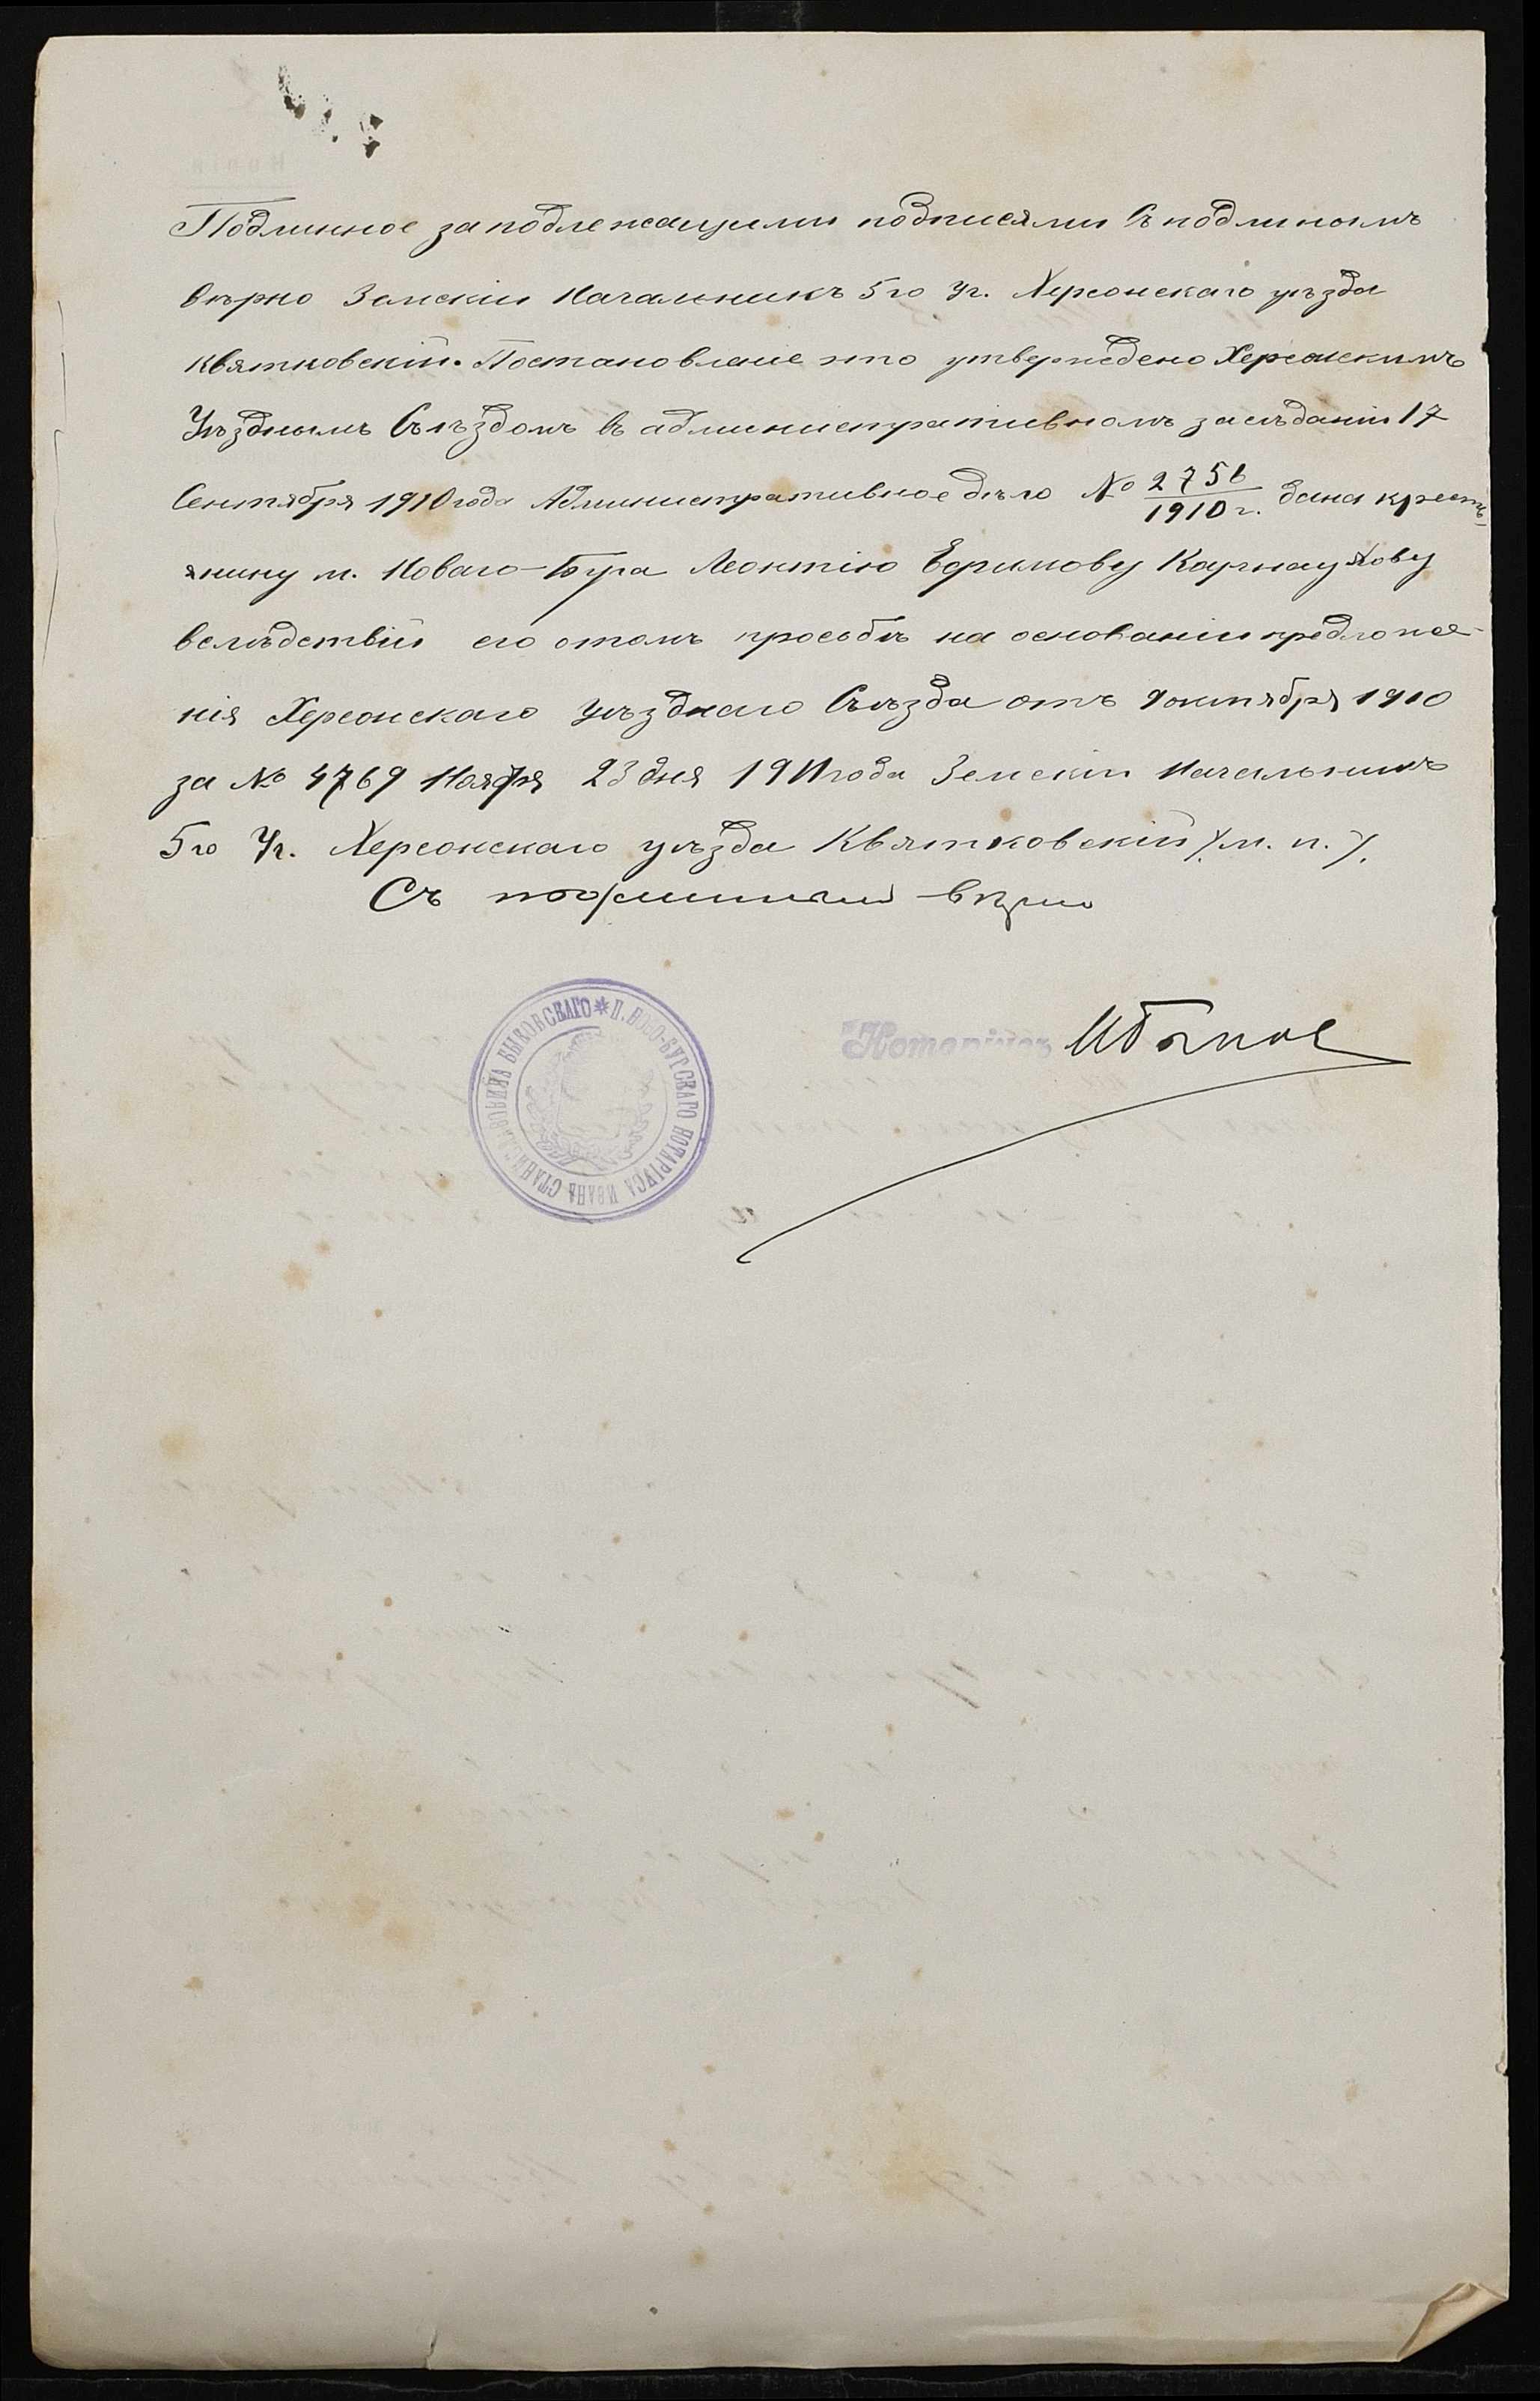 Подлинное за подлежащими подписями Съ подлинымъ
вѣрно Земскій Начальникъ 5го Уч. Херсонскаго уѣзда
Квятковскій. Постановленіе это утверждено Херсонскимъ
Уѣзднымъ Съѣздомъ въ административномъ засѣданіи 17
Сентября 1910 года Административное дѣло № 2756/1910 г. дана кресть-
янину м. Новаго-Буга Леонтію Ефимову Карнаухову
вслѣдствіи его о томъ просьбѣ на основаніи предложе-
нія Херсонскаго Уѣзднаго Съѣзда отъ 9 октября 1910
за № 4769 Ноября 23 дня 1911 года Земскій Начальникъ
5го Уч. Херсонскаго уѣзда Квятковскій /м. п./.
Съ подлиннымъ вѣрно
Нотаріусъ
П. НОВО-БУГСКАГО НОТАРІУСА ИВАНА СТАНИСЛАВОВИЧА БЫКОВСКАГО